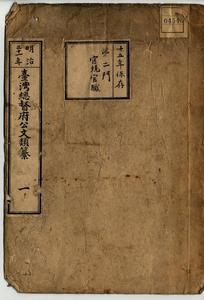 十五年保存
第二門
官規官職
明治
三十一年
臺灣總督府公文類纂
一